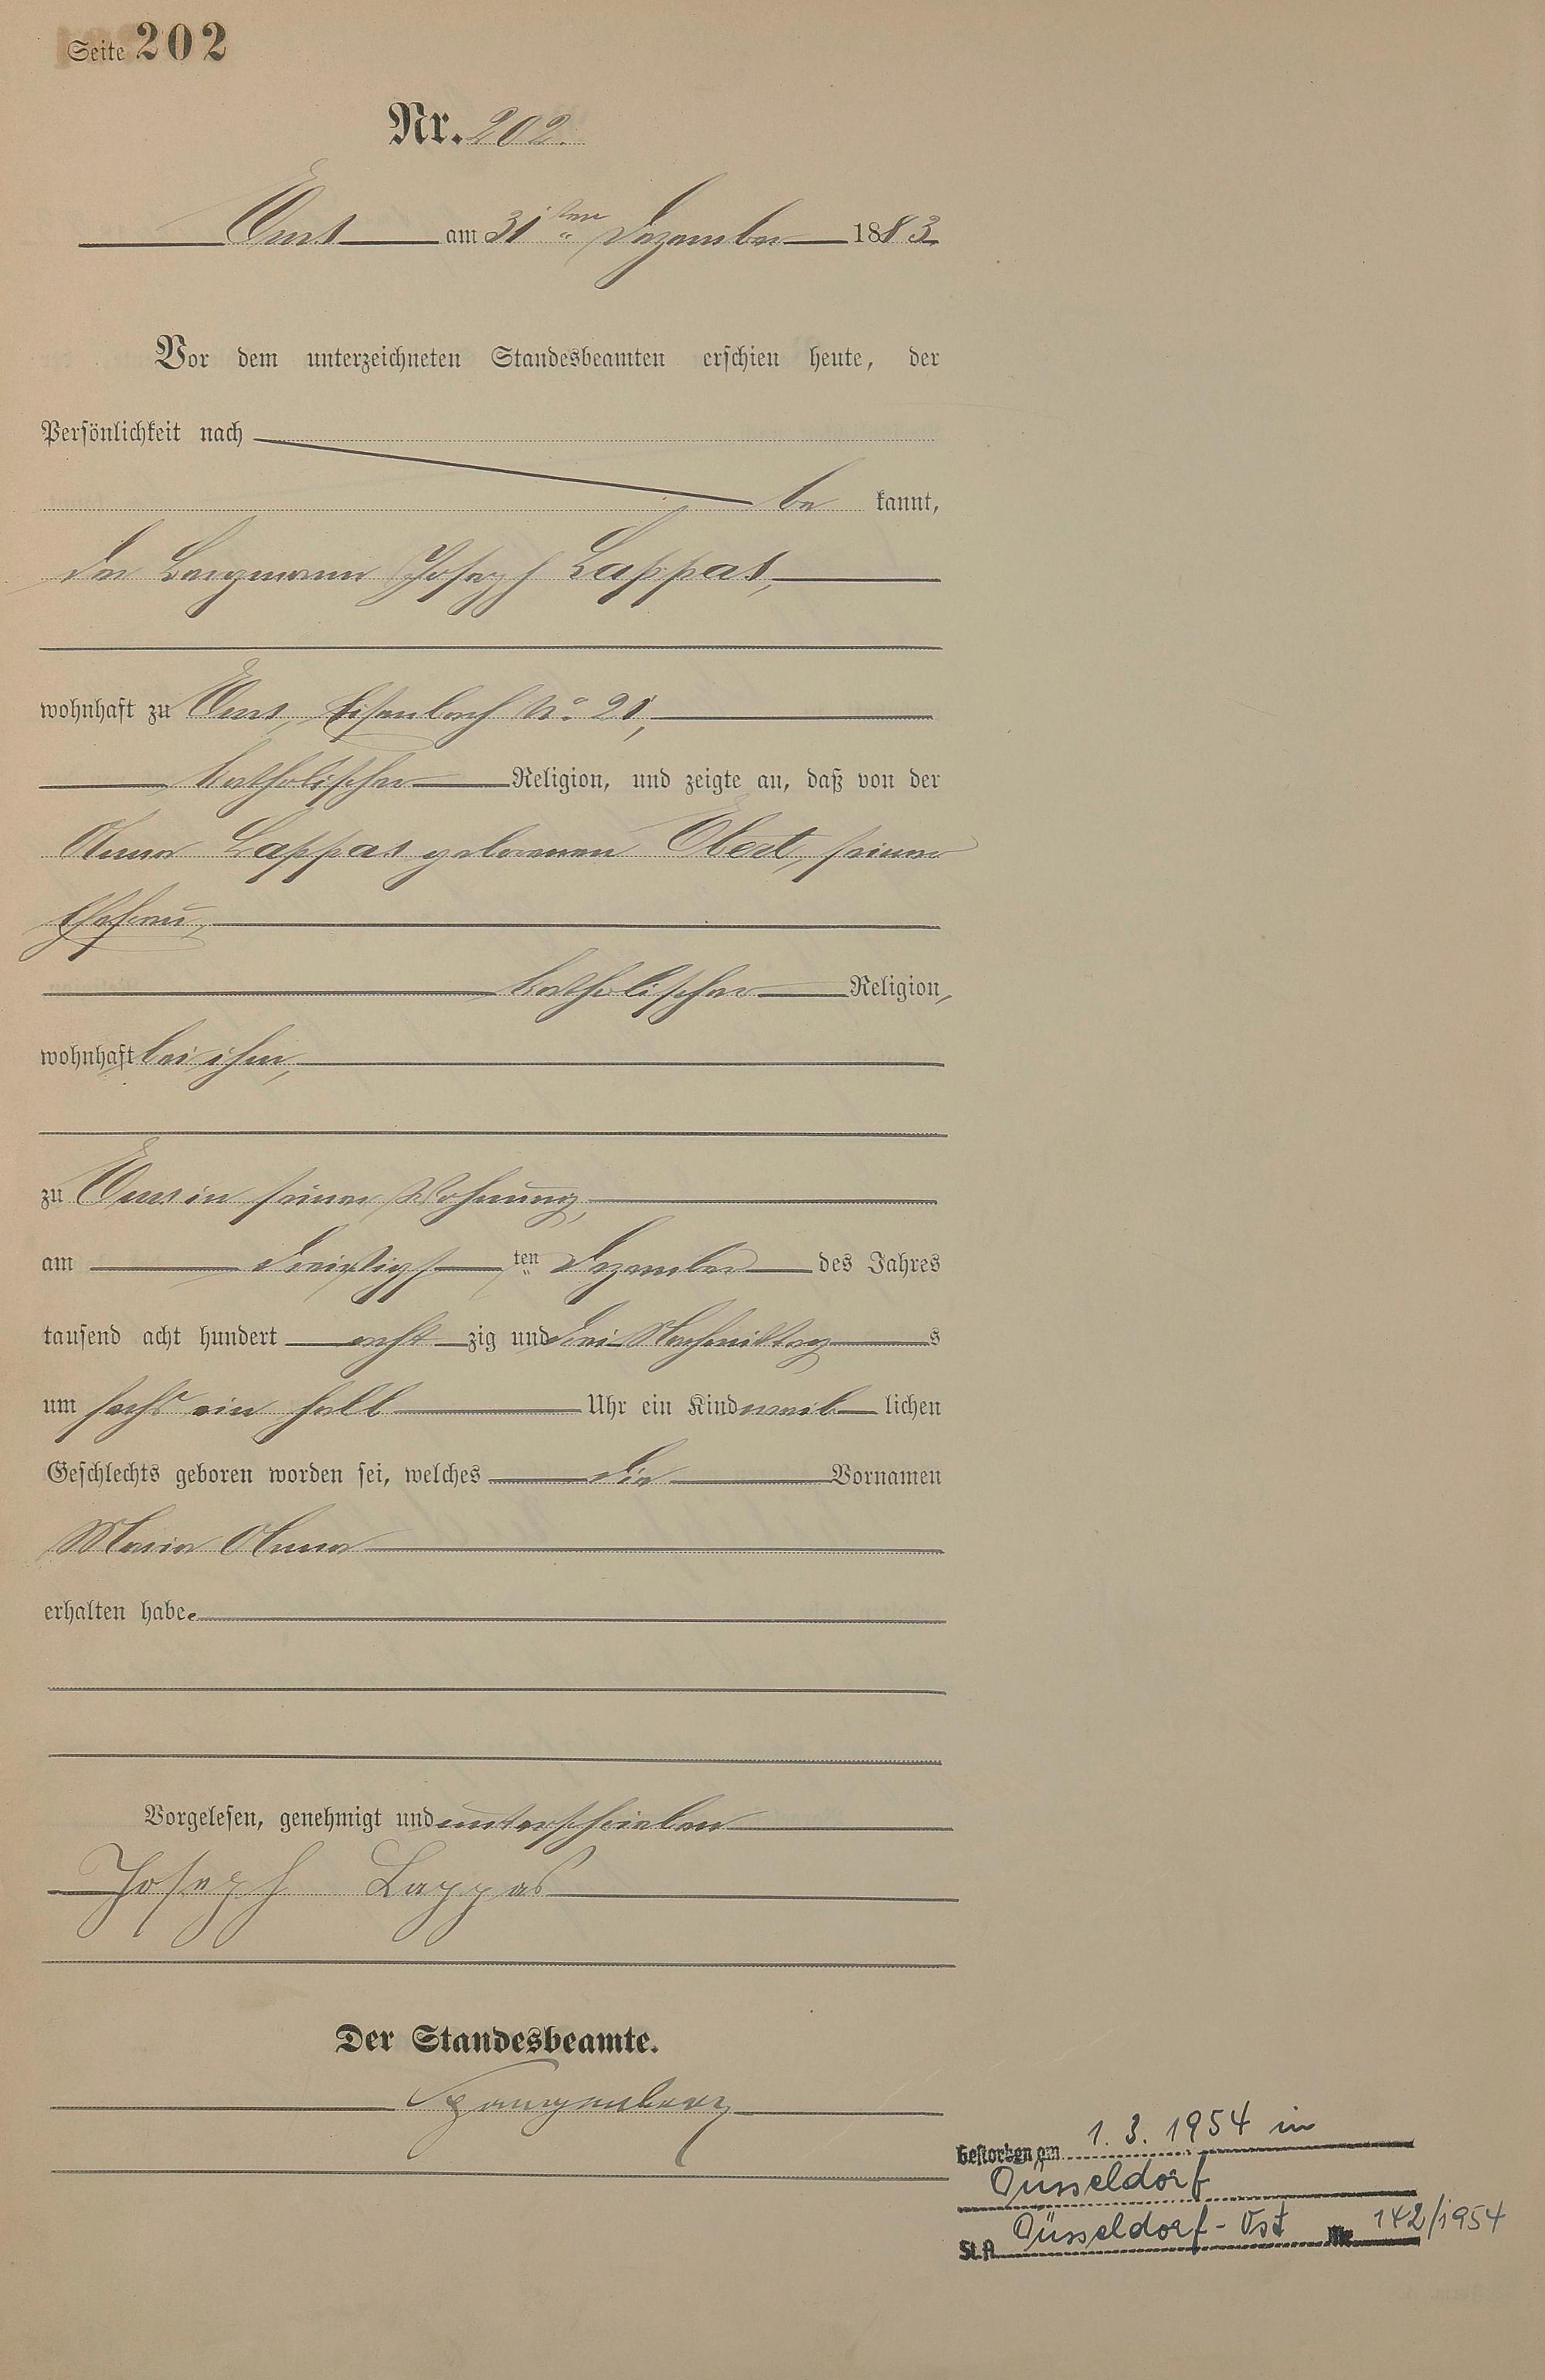 Seite 202
Nr. 202.
Ems am 31ten Dezember 1883
Vor dem unterzeichneten Standesbeamten erschien heute, der
Persönlichkeit nach
be kannt,
der Bergmann Joseph Lappas,
wohnhaft zu Ems, Eisenbach No. 21,
katholischer Religion, und zeigte an, daß von der
Anna Lappas geborenen Ebert, seiner
Ehefrau,
katholischer Religion,
wohnhaft bei ihm,
zu Ems in seiner Wohnung,
am dreißigsten Dezember des Jahres
tausend acht hundert acht zig und drei Nachmittags
um sechs ein halb Uhr ein Kind weib lichen
Geschlechts geboren worden sei, welches die Vornamen
Maria Anna
erhalten habe.
Vorgelesen, genehmigt und unterschrieben
Joseph Lappas
Der Standesbeamte.
Spangenberg
Gestorben am 1. 3. 1954 in
Düsseldorf
St.A. Düsseldorf-Ost Nr. 142/1954